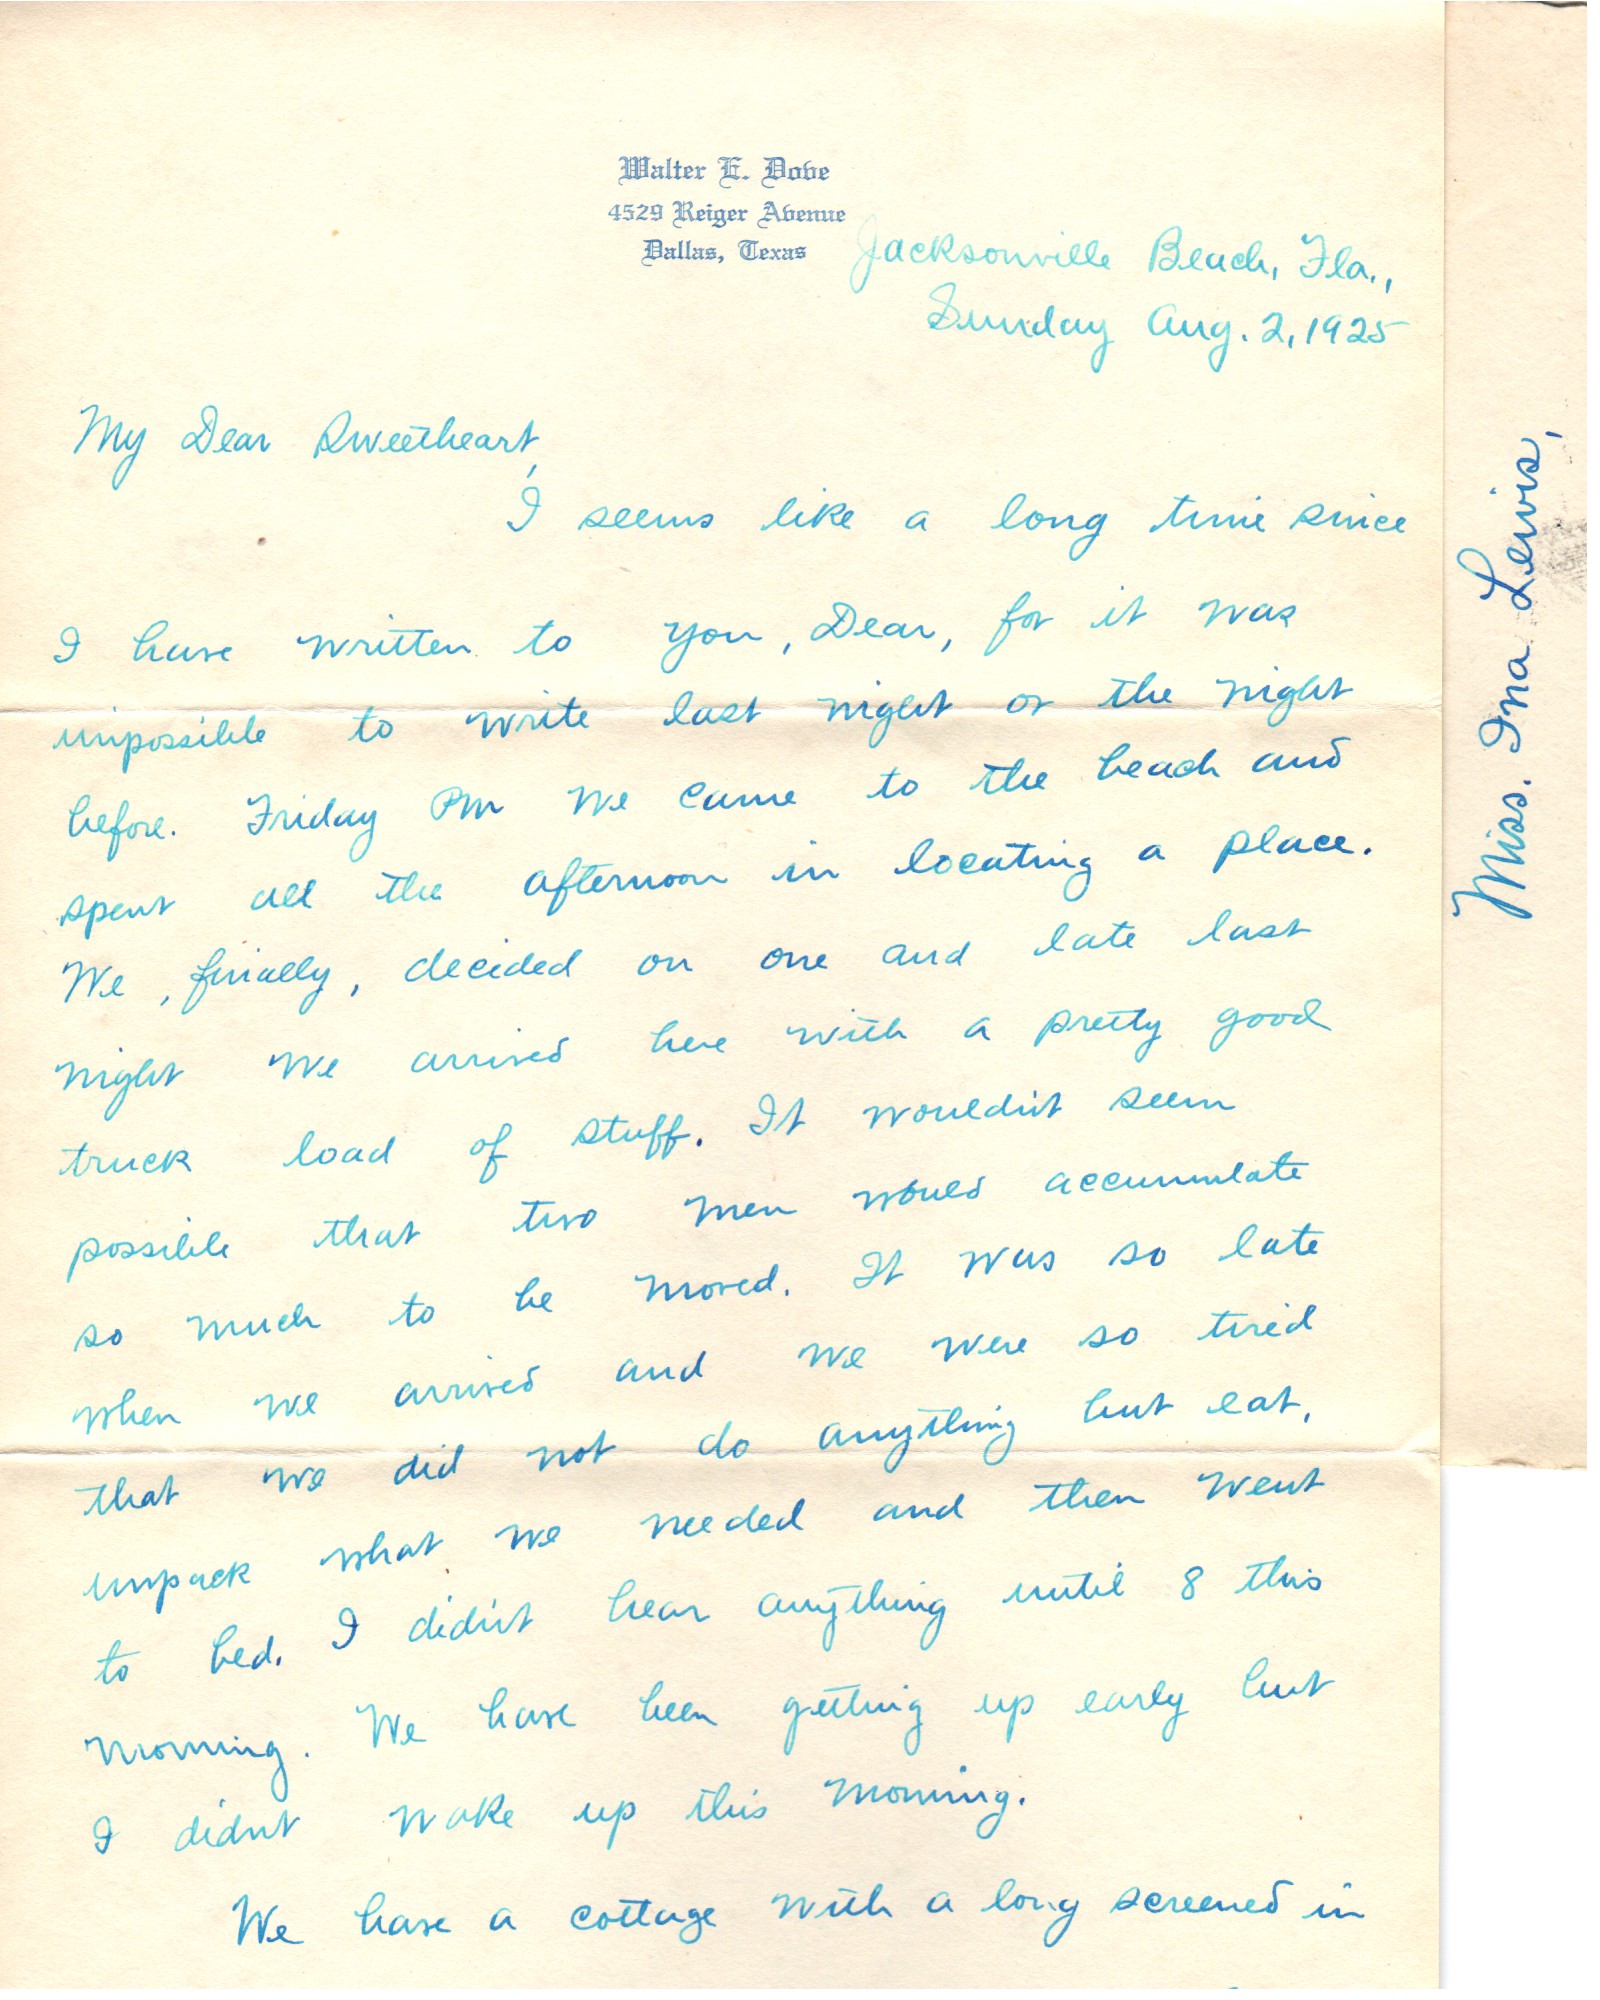 Walter E. Dove
4529 Reiger Avenue
Dallas, Texas
Jacksonville Beach, Fla.,
Sunday Aug. 2, 1925
My Dear Sweetheart,
I seems like a long time since
I have written to you, Dear, for it was
impossible to write last night or the night
before. Friday PM we came to the beach and
spent all the afternoon in locating a place.
We, finally, decided on one and late last
night we arrived here with a pretty good
truck load of stuff. It wouldn't seem
possible that two men would accumulate
so much to be moved. It was so late
when we arrived and we were so tired
that we did not do anything but eat,
unpack what we needed and then went
to bed. I didn't hear anything until 8 this
morning. We have been getting up early but
I didn't wake up this morning.
We have a cottage with a long screened in
Miss. Ina Lewis,